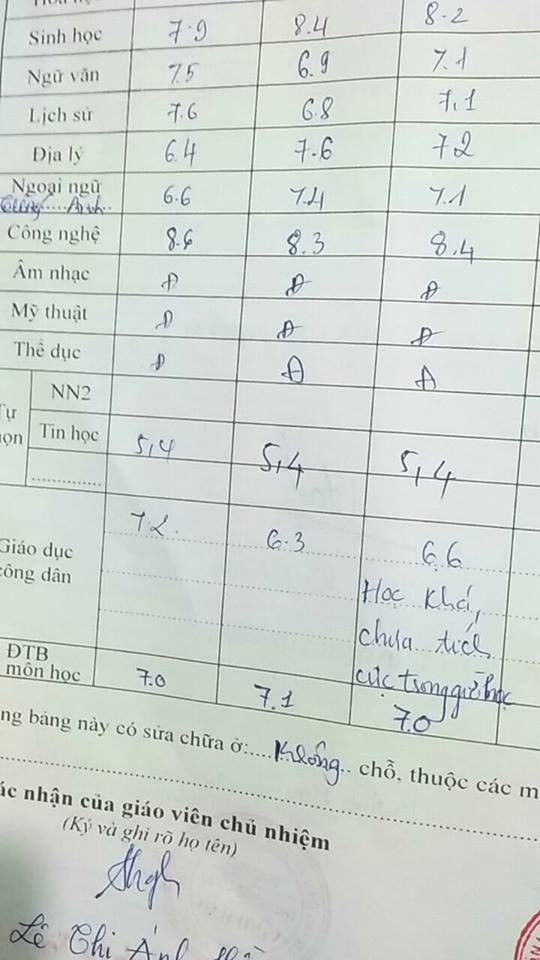 8.2
Sinh học 7.9 8.4
Ngữ văn 7.5 6.9 7.1
Lịch sử 7.6 6.8 7,1
Địa lý 6.4 7.6 7.2
Ngoại ngữ 6.6 7.4 7.1
Tiếng Anh
Công nghệ 8.6 8.3 8.4
Âm nhạc Đ Đ Đ
Mỹ thuật Đ Đ Đ
Thể dục Đ Đ Đ
NN2
Tự
Tin học 5,4 5,4 5,4
họn
Giáo dục 7.2. 6.3 6.6
công dân
Học khá,
chưa tích
cực trong giờ học
ĐTB
môn học 7.0 7.1 7.0
ng bảng này có sửa chữa ở:....Không.. chỗ, thuộc các m
ác nhận của giáo viên chủ nhiệm
(Ký và ghi rõ họ tên)
Lê Thi Ánh